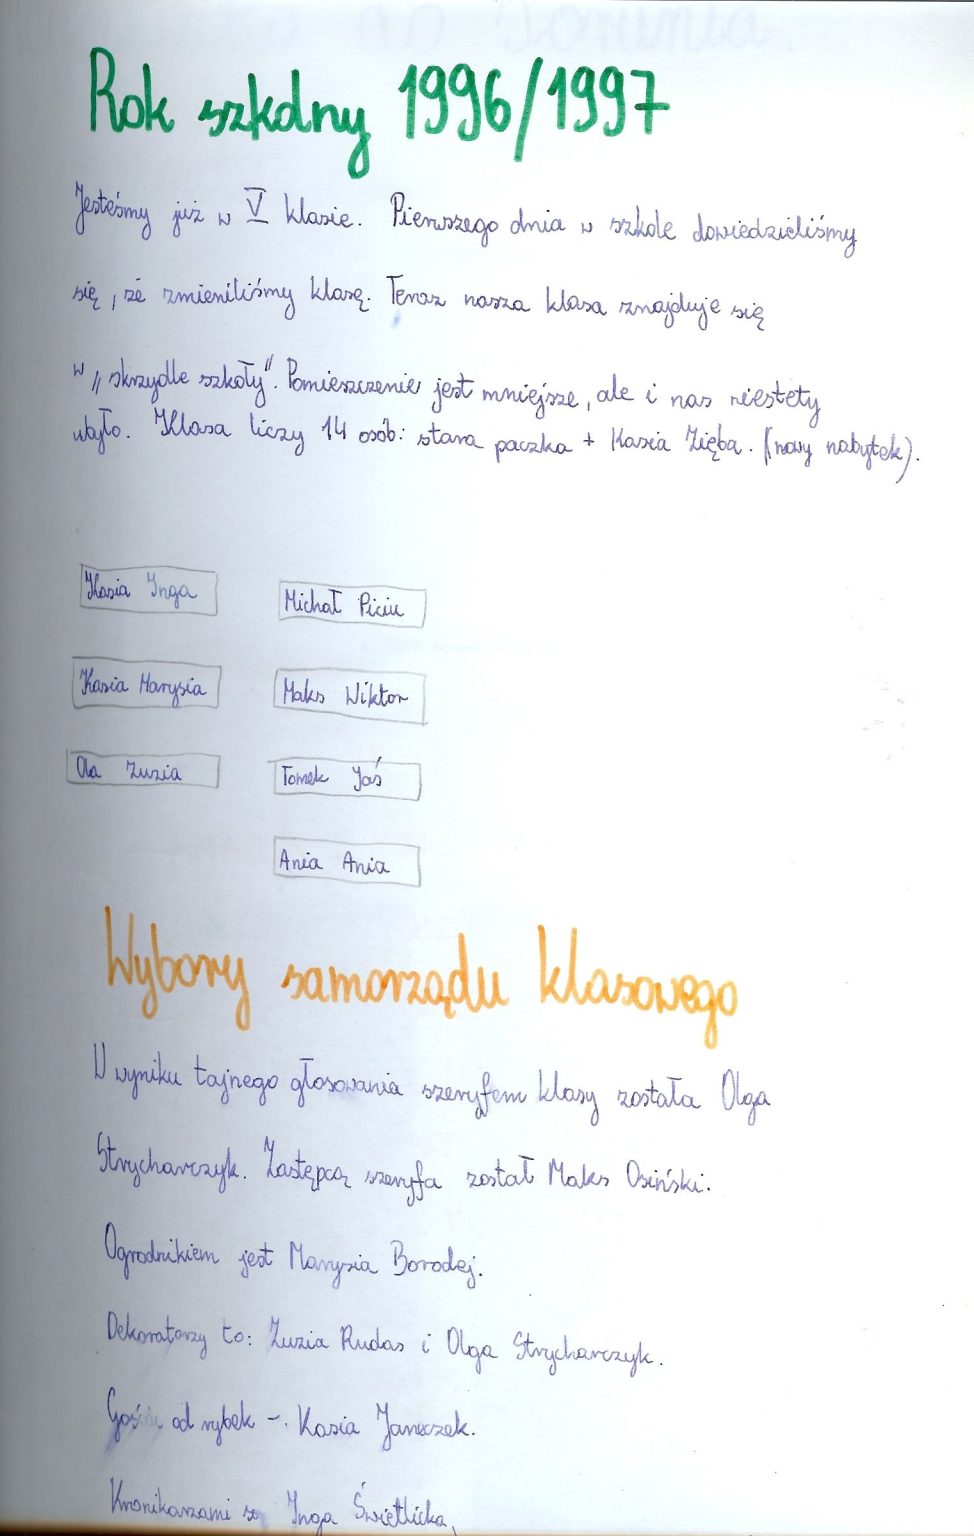 Rok szkolny 1996/1997
Jesteśmy już w V klasie. Pierwszego dnia w szkole dowiedzieliśmy
się, że zmieniliśmy klasę. Teraz nasza klasa znajduje się
w „skrzydle szkoły". Pomieszczenie jest mniejsze, ale i nas niestety
ubyło. Klasa liczy 14 osób: stara paczka + Kasia Zięba. (nowy nabytek).
Kasia Inga
Michał Piciu
Kasia Marysia
Maks Wiktor
Ola Zuzia
Tomek Jaś
Ania Ania
Wybory samorządu klasowego
W wyniku tajnego głosowania szeryfem klasy została Olga
Strycharczyk. Zastępcą szeryfa został Maks Osiński.
Ogrodnikiem jest Marysia Borodej.
Dekoratorzy to: Zuzia Rudas i Olga Strycharczyk.
od rybek -. Kasia Janeczek.
Kronikarzami są Inga Świetlicka,